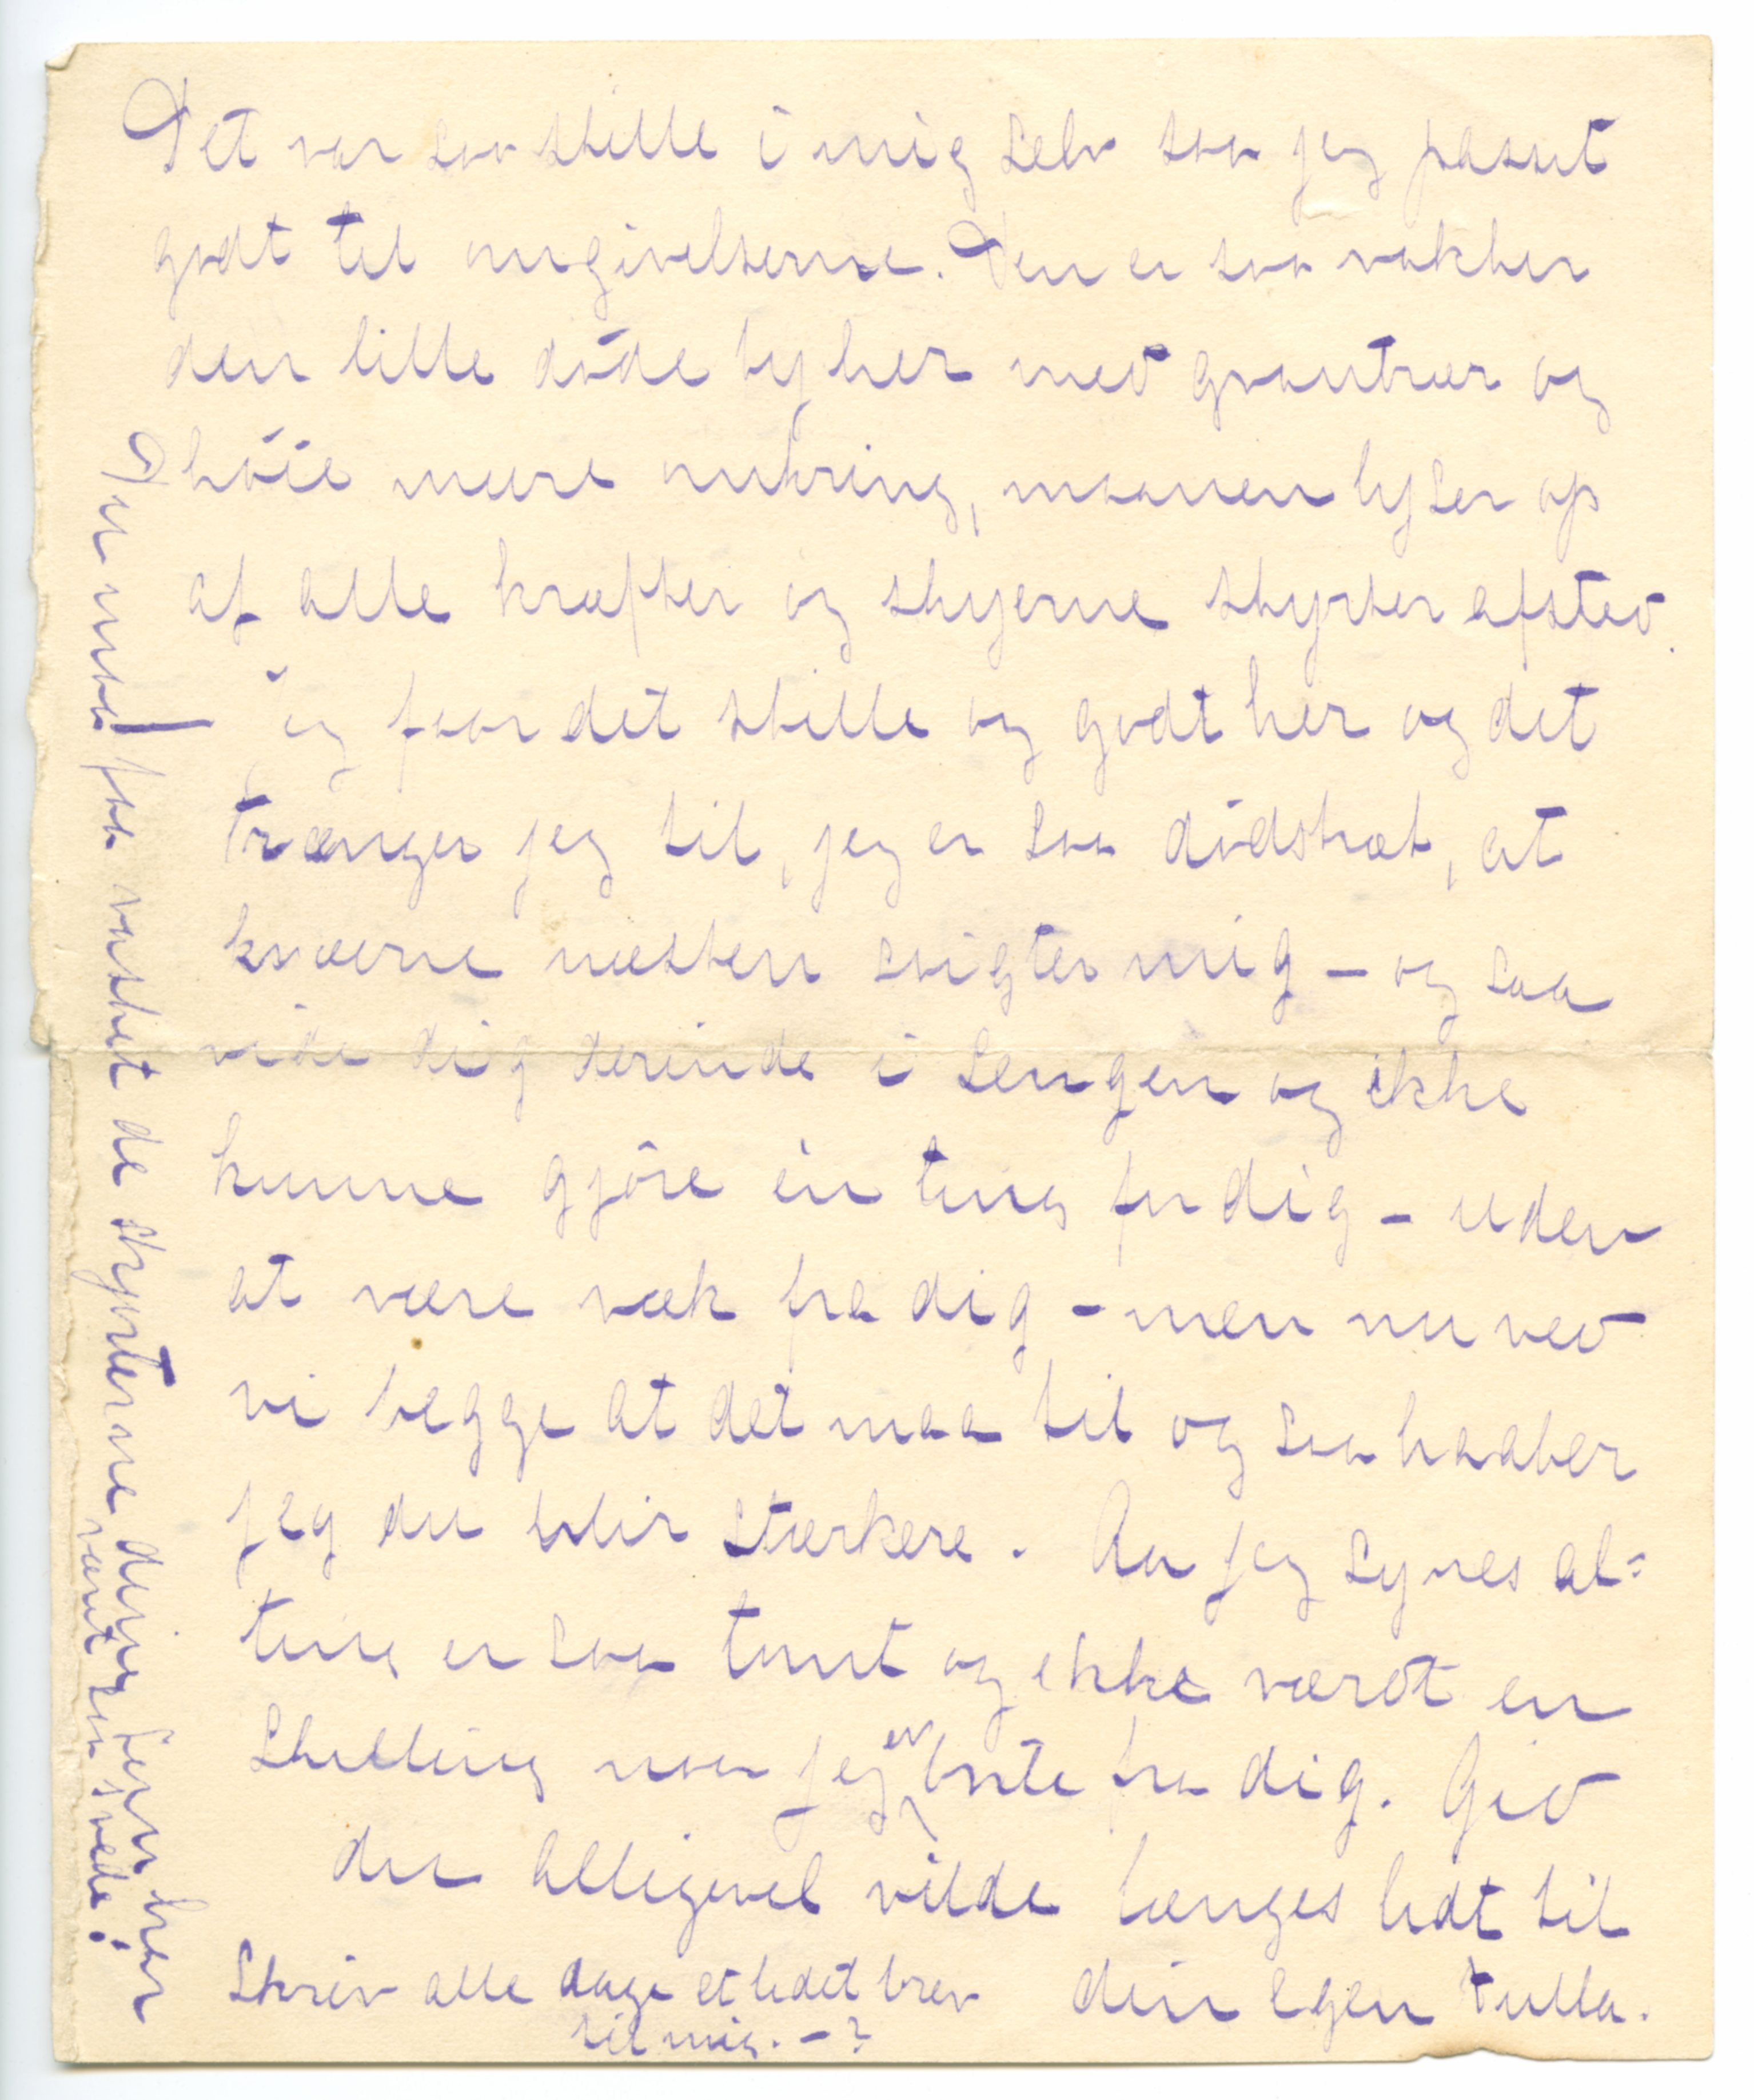 Det var saa stille i mig selv saa jeg passet
godt til omgivelserne. Den er saa vakker
den lille døde by her med grantrær og
høie mure omkring, maanen lyser op
af alle kræfter og skyerne skyster afsted.
Jeg faar det stille og godt her og det
trænger jeg til, jeg er saa dødstræt, at
knæerne næsten svigter mig – og saa
vide dig derinde i sengen og ikke
kunne gjøre én ting for dig – uden
at være væk fra dig – men nu ved
vi begge at det maa til og saa haaber
jeg du blir stærkere. Aa jeg synes al=
ting er saa tomt og ikke værdt en
skilling naar jeg er borte fra dig. Gid
du alligevel vilde længes lidt til
din egen Tulla.
Skriv alle dage et lidet brev
til mig. – ?
Du maa faa vasket de skjorterne dine som har
været svede!